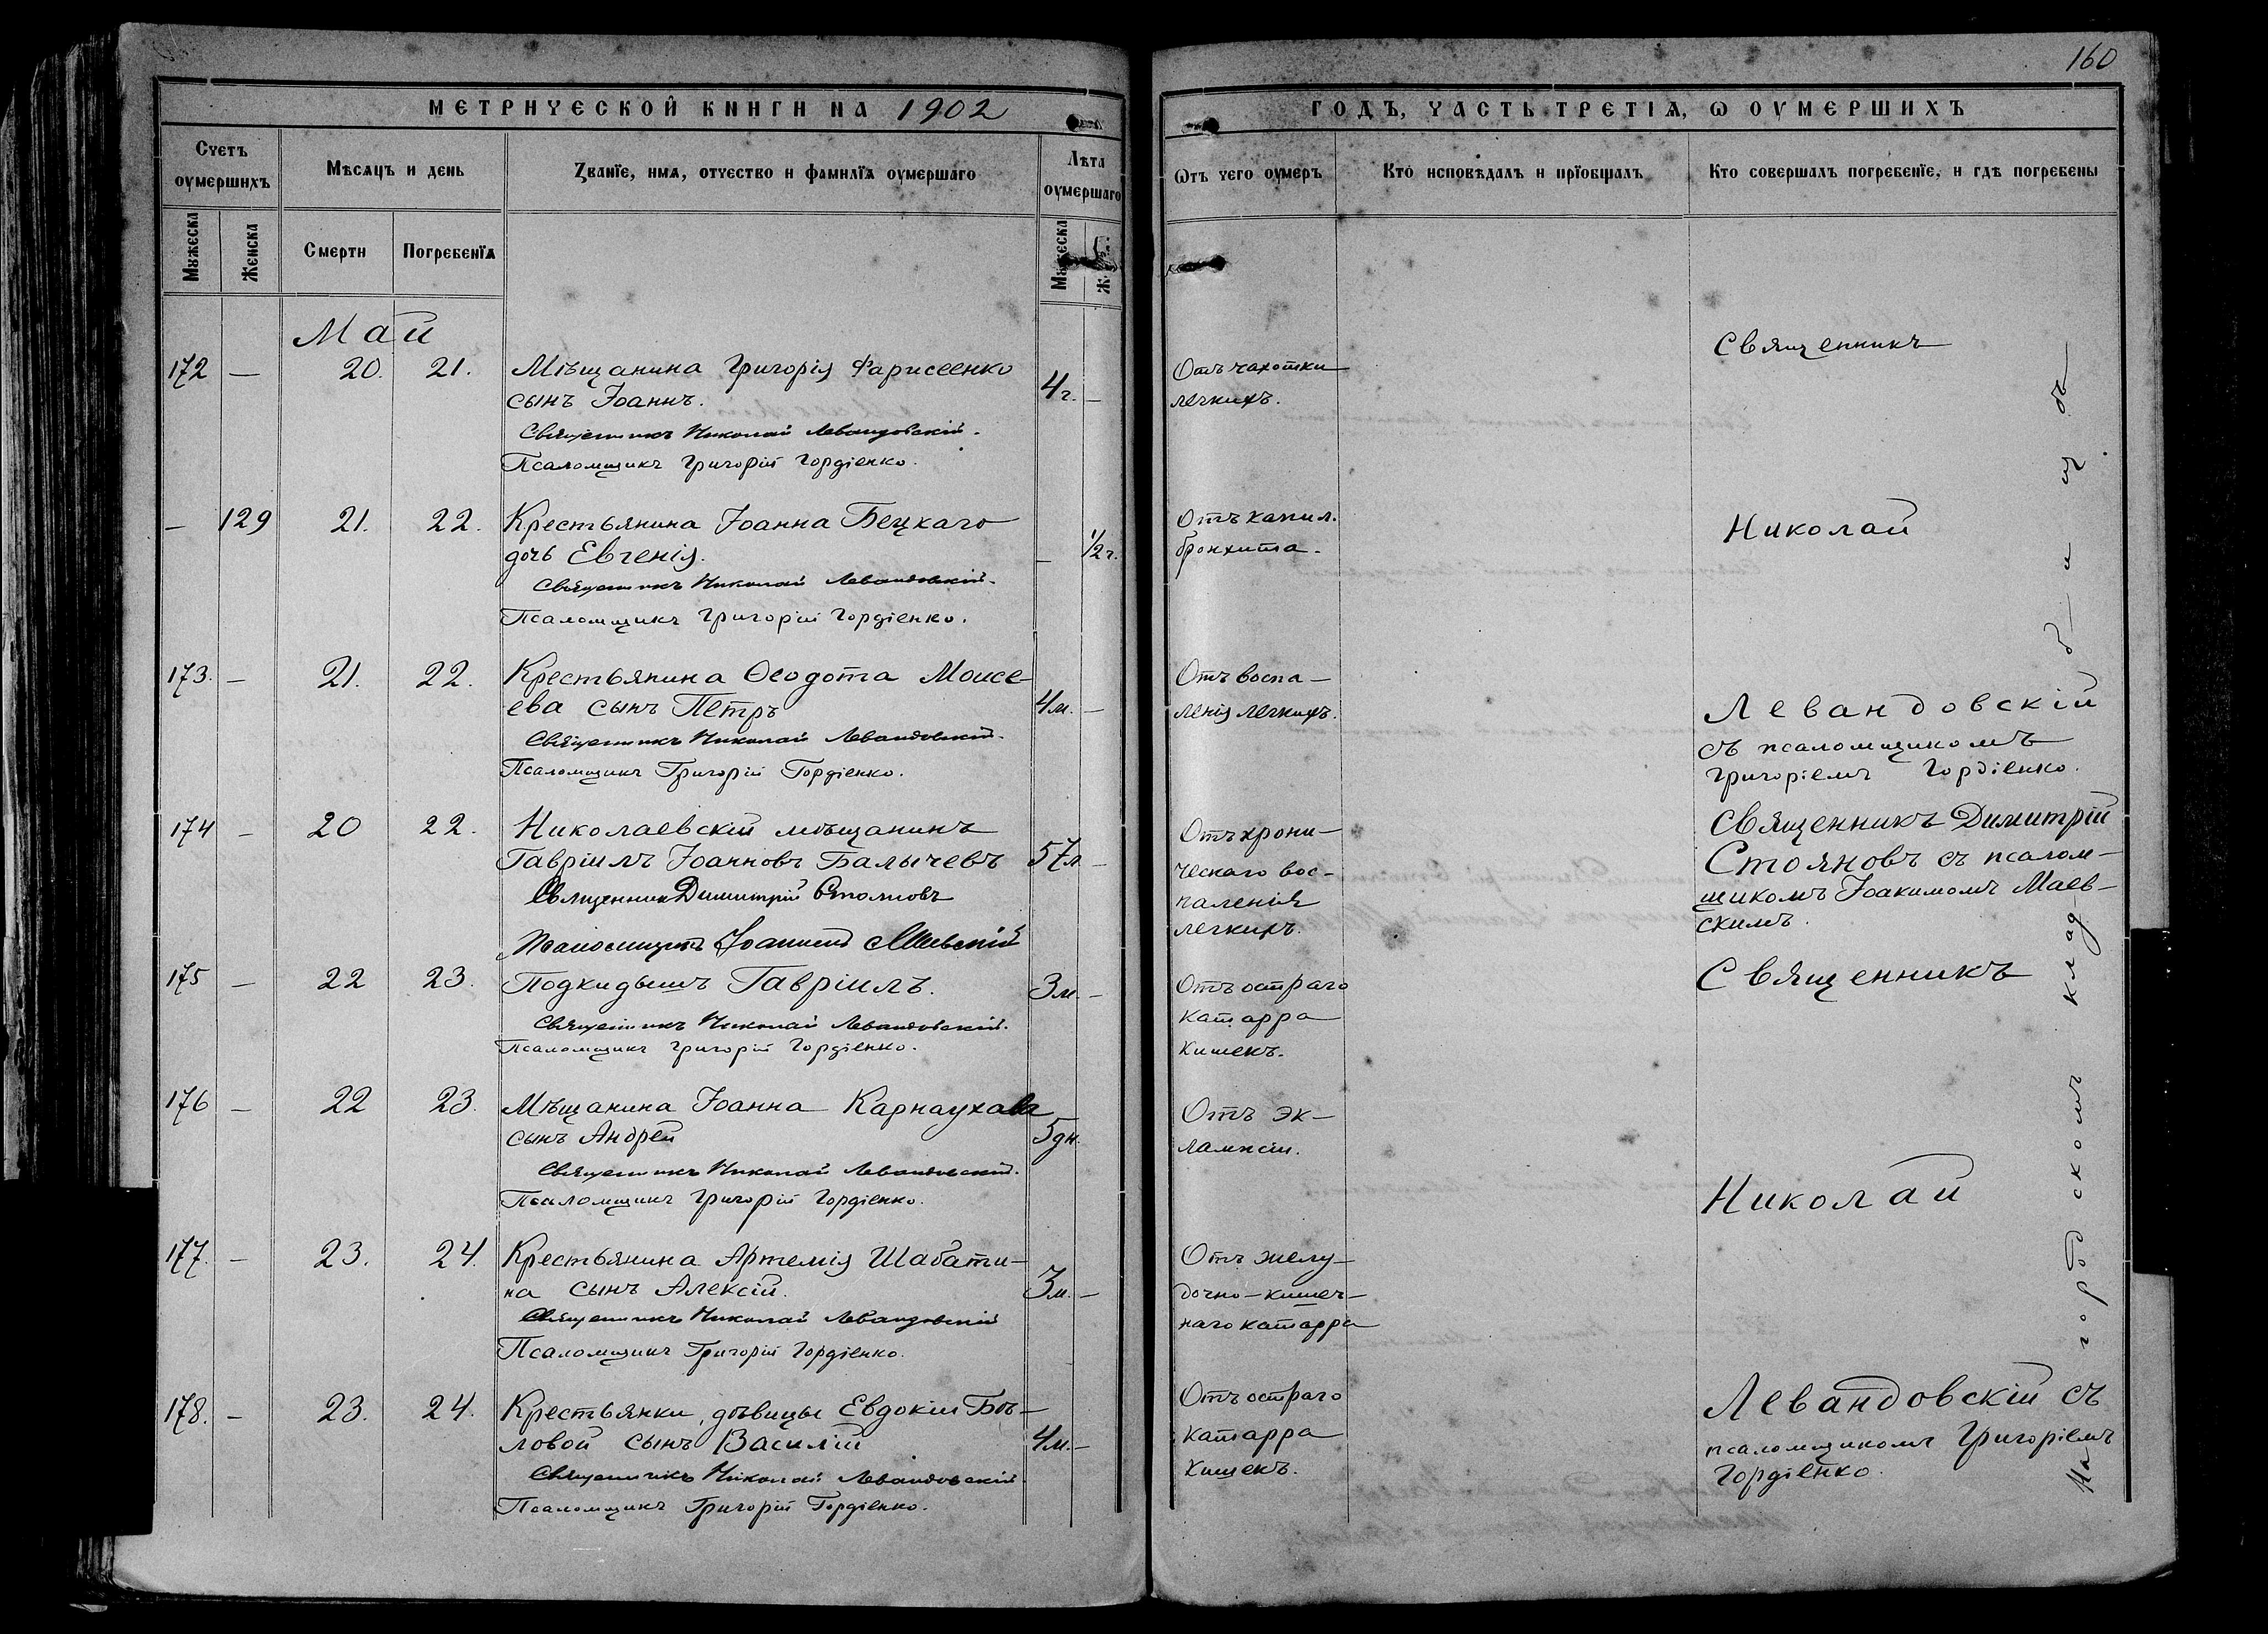 160
МЕТРИЧЕСКОЙ КНИГИ НА 1902
ГОДЪ, ЧАСТЬ ТРЕТІѦ, Ѡ ОУМЕРШИХЪ
Счетъ оумершихъ
Мѣсѧцъ и день
Званїе, имѧ, отчество и фамилїѧ оумершаго
Лѣта оумершаго
Ѡтъ чего оумеръ
Кто исповѣдалъ и прїобщалъ
Кто совершалъ погребенїе, и гдѣ погребены
Мꙋжеска
Женска
Смерти
Погребенїѧ
Мꙋжеска
Май
172 — 20. 21. Мѣщанина Григорія Фарисеенко 4 г. —
сынъ Іоаннъ.
Священникъ Николай Левандовскій.
Псаломщикъ Григорій Гордіенко.
Отъ чахотки
легкихъ.
Священникъ
— 129 21. 22. Крестьянина Іоанна Бецкаго — 1/2 г.
дочь Евгенія.
Священникъ Николай Левандовскій.
Псаломщикъ Григорій Гордіенко.
Отъ капил.
бронхита.
Николай
173. — 21. 22. Крестьянина Ѳеодота Моисе-
ева сынъ Петръ 4 м. —
Священникъ Николай Левандовскій.
Псаломщикъ Григорій Гордіенко.
Отъ воспа-
ленія легкихъ.
Левандовскій
съ псаломщикомъ
Григоріемъ Гордіенко.
174 — 20 22. Николаевскій мѣщанинъ
Гавріилъ Іоанновъ Балычевъ 57 л. —
Священникъ Димитрій Стояновъ
Псаломщикъ Іоакимъ Маевскій
Отъ хрони-
ческаго вос-
паленія
легкихъ.
Священникъ Димитрій
Стояновъ съ псалом-
щикомъ Іоакимомъ Маев-
скимъ.
175 — 22 23. Подкидышъ Гавріилъ. 3 м. —
Священникъ Николай Левандовскій.
Псаломщикъ Григорій Гордіенко.
Отъ остраго
катарра
кишекъ.
Священникъ
176 — 22 23. Мѣщанина Іоанна Карнаухова
сынъ Андрей 5 дн.
Священникъ Николай Левандовскій.
Псаломщикъ Григорій Гордіенко.
Отъ эк-
лампсіи.
Николай
177. — 23. 24. Крестьянина Артемія Шабати-
на сынъ Алексій. 3 м. —
Священникъ Николай Левандовскій
Псаломщикъ Григорій Гордіенко.
Отъ желу-
дочно-кишеч-
наго катарра
178. — 23. 24. Крестьянки, дѣвицы Евдокіи Бѣ-
ловой сынъ Василій 4 м. —
Священникъ Николай Левандовскій.
Псаломщикъ Григорій Гордіенко.
Отъ остраго
катарра
кишекъ.
Левандовскій съ
псаломщикомъ Григоріемъ
Гордіенко.
На городскомъ кладбищѣ